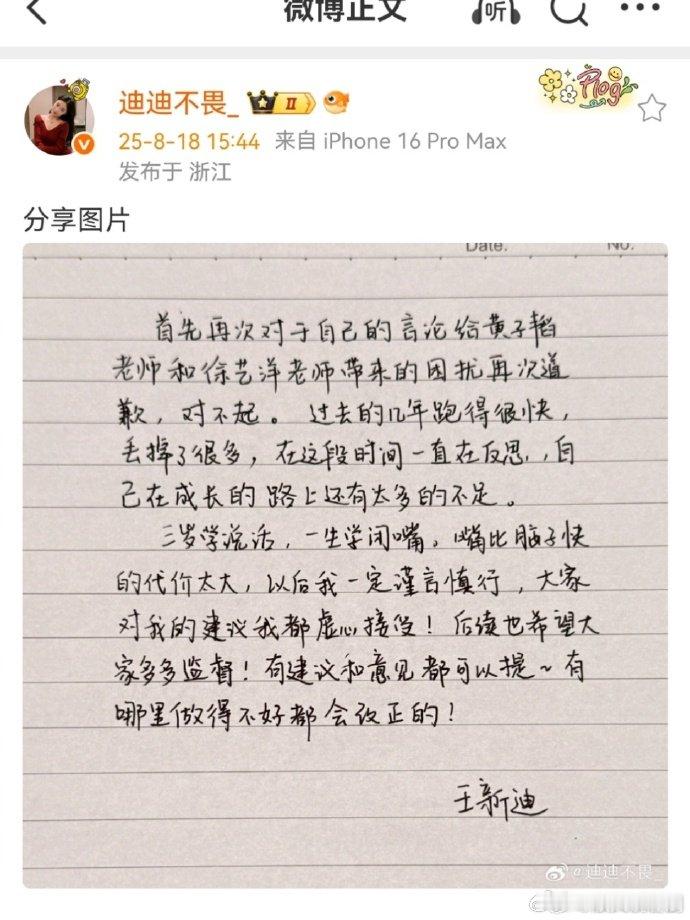 微博正文
听
迪迪不畏_
II
Plog
25-8-18 15:44 来自 iPhone 16 Pro Max
发布于 浙江
分享图片
Date. No.
首先再次对于自己的言论给黄子韬
老师和徐艺洋老师带来的困扰再次道
歉，对不起。过去的几年跑得很快，
丢掉了很多，在这段时间一直在反思，自
己在成长的路上还有太多的不足。
三岁学说话，一生学闭嘴，嘴比脑子快
的代价太大，以后我一定谨言慎行，大家
对我的建议我都虚心接受！后续也希望大
家多多监督！有建议和意见都可以提~有
哪里做得不好都会改正的！
王新迪
@迪迪不畏_